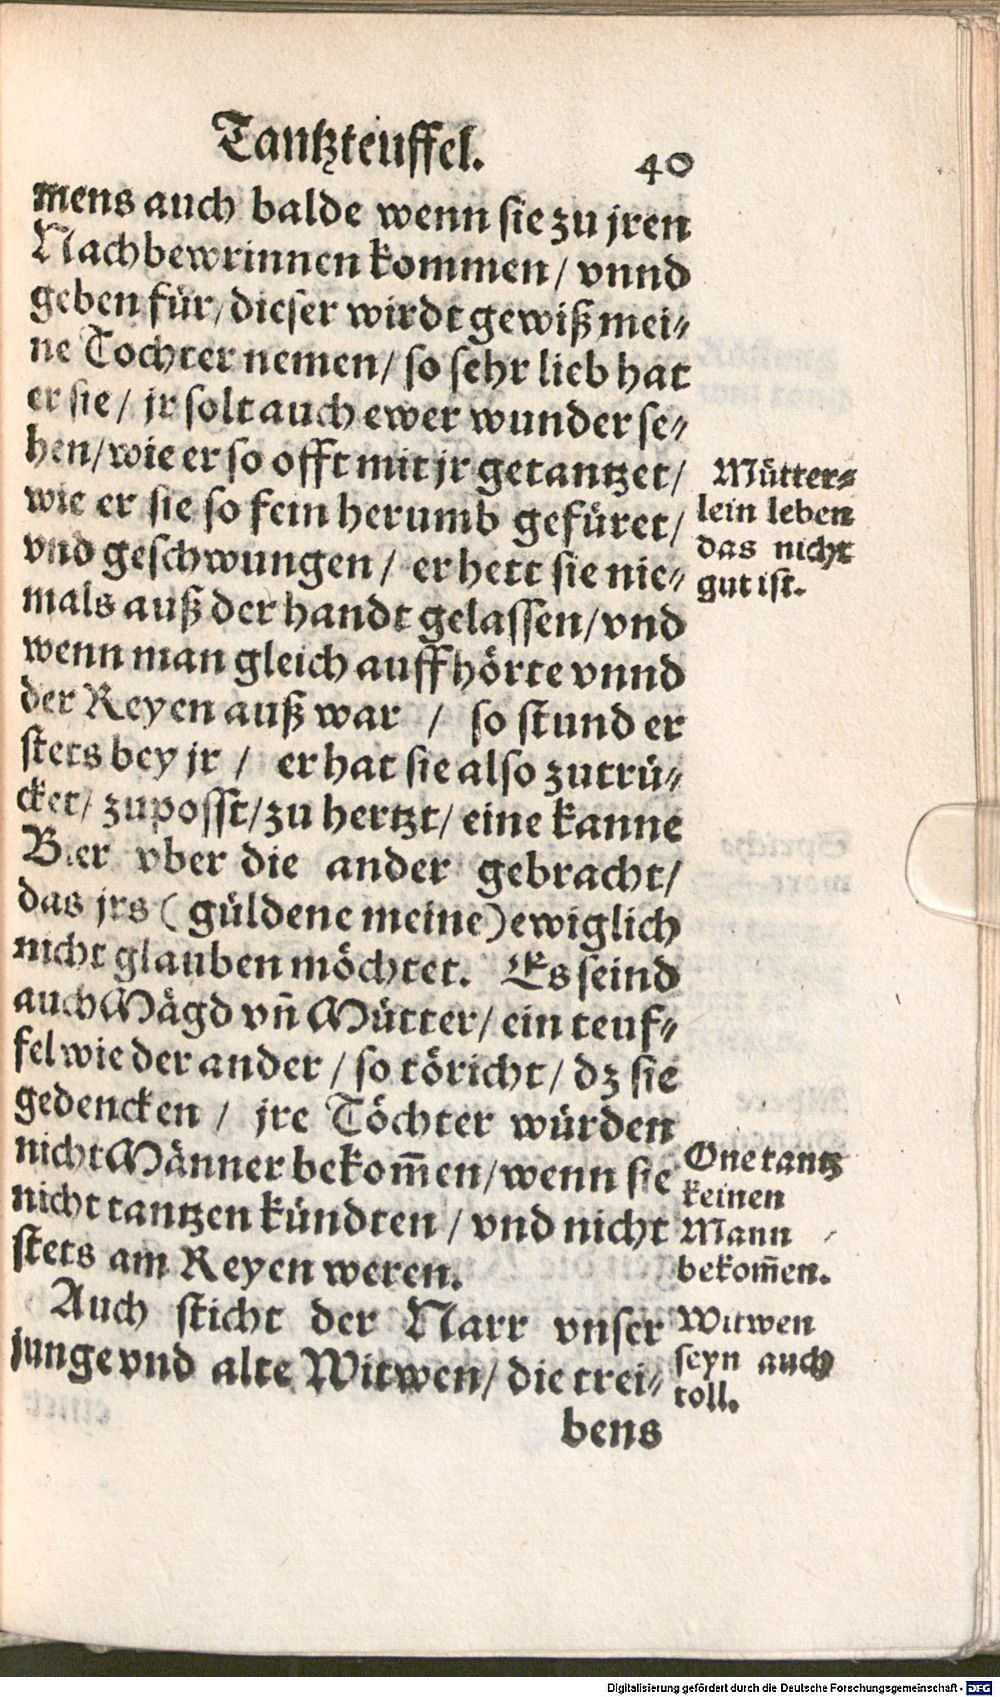 Tantzteuffel. 40
mens auch balde wenn sie zu jren
Nachbewrinnen kommen / vnnd
geben für / dieser wirdt gewiß mei⸗
ne Tochter nemen / so sehr lieb hat
er sie / jr solt auch ewer wunder se⸗
hen / wie er so offt mit jr getantzet /
wie er sie so fein herumb gefüret /
vnd geschwungen / er hett sie nie⸗
mals auß der handt gelassen / vnd
wenn man gleich auffhörte vnnd
der Reyen auß war / so stund er
stets bey jr / er hat sie also zutrü⸗
cket / zuposst / zu hertzt / eine kanne
Bier vber die ander gebracht /
das jrs (güldene meine) ewiglich
nicht glauben möchtet. Es seind
auch Mägd vñ Mütter / ein teuf⸗
fel wie der ander / so töricht / dz sie
gedencken / jre Töchter würden
nicht Männer bekom̃en / wenn sie
nicht tantzen kündten / vnd nicht
stets am Reyen weren.
Auch sticht der Narr vnser
junge vnd alte Witwen / die trei⸗
bens
Mütter⸗
lein leben
das nicht
gut ist.
One tantz
keinen
Mann
bekom̃en.
Witwen
seyn auch
toll.
Digitalisierung gefördert durch die Deutsche Forschungsgemeinschaft - DFG